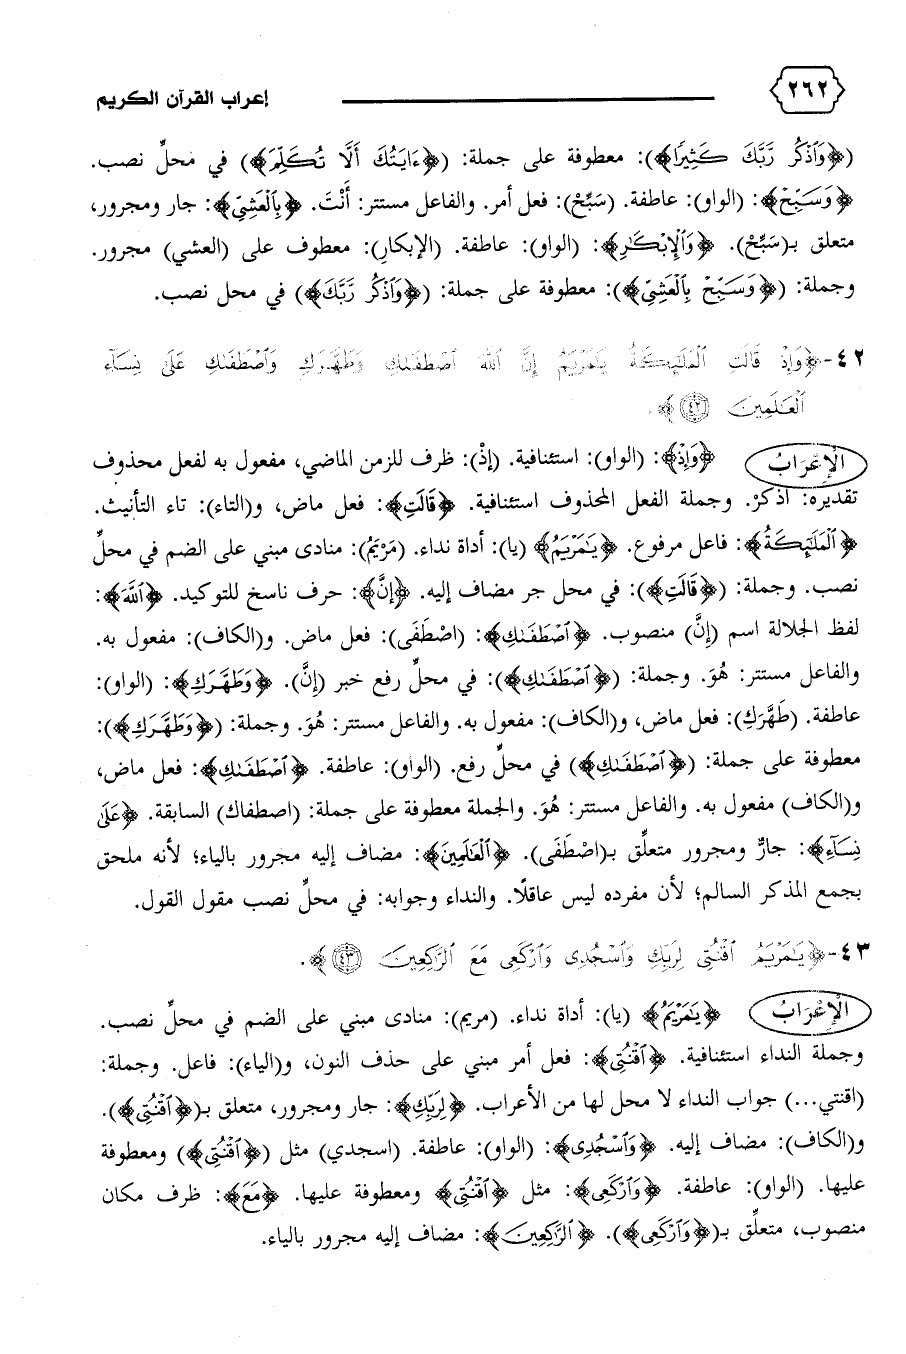 ٢٦٢ إعراب القرآن الكريم
(﴿وَٱذۡكُر رَّبَّكَ كَثِيرٗا﴾): معطوفة على جملة: (﴿ءَايَتُكَ أَلَّا تُكَلِّمَ﴾) في محلِّ نصب.
﴿وَسَبِّحۡ﴾: (الواو): عاطفة. (سَبِّحْ): فعل أمر. والفاعل مستتر: أَنْتَ. ﴿بِٱلۡعَشِيِّ﴾: جار ومجرور،
متعلق بـ(سَبِّحْ). ﴿وَٱلۡإِبۡكَٰرِ﴾: (الواو): عاطفة. (الإبكارِ): معطوف على (العشي) مجرور.
وجملة: (﴿وَسَبِّحۡ بِٱلۡعَشِيِّ﴾): معطوفة على جملة: (﴿وَٱذۡكُر رَّبَّكَ﴾) في محل نصب.
٤٢-﴿وَإِذۡ قَالَتِ ٱلۡمَلَٰٓئِكَةُ يَٰمَرۡيَمُ إِنَّ ٱللَّهَ ٱصۡطَفَىٰكِ وَطَهَّرَكِ وَٱصۡطَفَىٰكِ عَلَىٰ نِسَآءِ
ٱلۡعَٰلَمِينَ ٤٢﴾.
الإِعْرَابُ ﴿وَإِذۡ﴾: (الواو): استئنافية. (إذْ): ظرف للزمن الماضي، مفعول به لفعل محذوف
تقديره: اذكرْ. وجملة الفعل المحذوف استئنافية. ﴿قَالَتِ﴾: فعل ماض، و(التاء): تاء التأنيث.
﴿ٱلۡمَلَٰٓئِكَةُ﴾: فاعل مرفوع. ﴿يَٰمَرۡيَمُ﴾ (يا): أداة نداء. (مَرْيَمُ): منادى مبني على الضم في محلِّ
نصب. وجملة: (﴿قَالَتِ﴾): في محل جر مضاف إليه. ﴿إِنَّ﴾: حرف ناسخ للتوكيد. ﴿ٱللَّهَ﴾:
لفظ الجلالة اسم (إنَّ) منصوب. ﴿ٱصۡطَفَىٰكِ﴾: (اصْطَفَى): فعل ماض. و(الكاف): مفعول به.
والفاعل مستتر: هُوَ. وجملة: (﴿ٱصۡطَفَىٰكِ﴾): في محلِّ رفع خبر (إنَّ). ﴿وَطَهَّرَكِ﴾: (الواو):
عاطفة. (طَهَّرَكِ): فعل ماض، و(الكاف): مفعول به. والفاعل مستتر: هُوَ. وجملة: (﴿وَطَهَّرَكِ﴾):
معطوفة على جملة: (﴿ٱصۡطَفَىٰكِ﴾) في محلِّ رفع. (الواو): عاطفة. ﴿ٱصۡطَفَىٰكِ﴾: فعل ماض،
و(الكاف) مفعول به. والفاعل مستتر: هُوَ. والجملة معطوفة على جملة: (اصطفاك) السابقة. ﴿عَلَىٰ
نِسَآءِ﴾: جارٌّ ومجرور متعلِّق بـ(اصْطَفَى). ﴿ٱلۡعَٰلَمِينَ﴾: مضاف إليه مجرور بالياء؛ لأنه ملحق
بجمع المذكر السالم؛ لأن مفرده ليس عاقلًا. والنداء وجوابه: في محلِّ نصب مقول القول.
٤٣-﴿يَٰمَرۡيَمُ ٱقۡنُتِي لِرَبِّكِ وَٱسۡجُدِي وَٱرۡكَعِي مَعَ ٱلرَّٰكِعِينَ ٤٣﴾.
الإِعْرَابُ ﴿يَٰمَرۡيَمُ﴾ (يا): أداة نداء. (مريم): منادى مبني على الضم في محلِّ نصب.
وجملة النداء استئنافية. ﴿ٱقۡنُتِي﴾: فعل أمر مبني على حذف النون، و(الياء): فاعل. وجملة:
(اقنتي...) جواب النداء لا محل لها من الأعراب. ﴿لِرَبِّكِ﴾: جار ومجرور، متعلق بـ(﴿ٱقۡنُتِي﴾).
و(الكاف): مضاف إليه. ﴿وَٱسۡجُدِي﴾: (الواو): عاطفة. (اسجدي) مثل (﴿ٱقۡنُتِي﴾) ومعطوفة
عليها. (الواو): عاطفة. ﴿وَٱرۡكَعِي﴾: مثل ﴿ٱقۡنُتِي﴾ ومعطوفة عليها. ﴿مَعَ﴾: ظرف مكان
منصوب، متعلِّق بـ(﴿وَٱرۡكَعِي﴾). ﴿ٱلرَّٰكِعِينَ﴾: مضاف إليه مجرور بالياء.